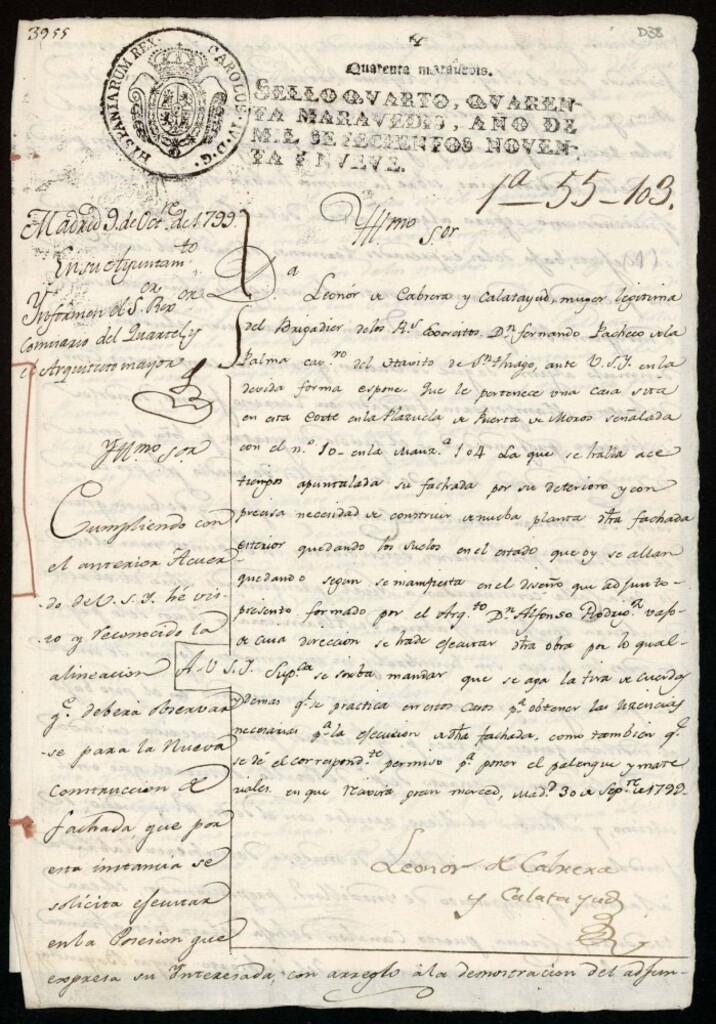 3955
D38
HISPANIARUM REX. CAROLUS IV D. G.
Quarenta maravedis.
SELLO QVARTO, QVAREN-
TA MARAVEDIS, AÑO DE
MIL SETECIENTOS NOVEN-
TA Y NUEVE.
1ª-55-103.
Madrid 9. de Octre. de 1799.
En su Ayuntamto
Informen el Sor. Rexor
Comisario del Quartel y
el Arquitecto mayor
Yllmo Sor
Da Leonór de Cabrera y Calatayud, muger legitima
del Brigadier de los Rs. Exercitos, Dn. Fernando Pacheco de la
Palma cavro. del Havito de Sn. Thiago, ante V.S.Y. en la
devida forma espone. Que le pertenece una casa sita
en esta Corte en la Plazuela de Puerta de Moros señalada
con el no. 10- en la Manza. 104 La que se halla ace
tiempos apuntalada su fachada por su deterioro y con
precisa necesidad de construir de nueba planta dha fachada
esterior quedando los suelos en el estado que oy se allan
quedando segun se manifiesta en el diseño que adjunto-
presento formado por el Arqto. Dn. Alfonso Rodrigz.
de cuia direccion se hade ejecutar dha obra por lo qual-
A V.S.Y. Suppca se sirba mandar que se aga la tira de cuerdas
demas qe. se practica en estos casos pa. obtener las licencias
necesarias pa. la ejecucion de dha fachada, como tambien qe.
se dé el correspondte. permiso pa. poner el palenque y mate
riales. en que recivira gran merced, Madd. 30 de Sepre. de 1799.
Leonor de Cabrera
y Calatayud
Yllmo Sor
Cumpliendo con
el anterior Acuer
do de V.S.Y. hé vis-
to y reconocido la
alineacion
qe. deberá observar
-se para la Nueva
Construccion de
fachada, que por
esta instancia se
solicita ejecutar
en la Posesion que
expresa su Interesada, con arreglo á la demostracion del adjun-